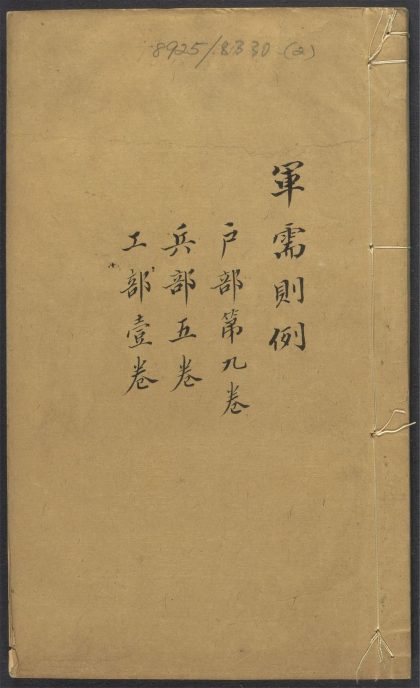 8925/8330 (2)
軍需則例
户部第九卷
兵部五卷
工部壹卷